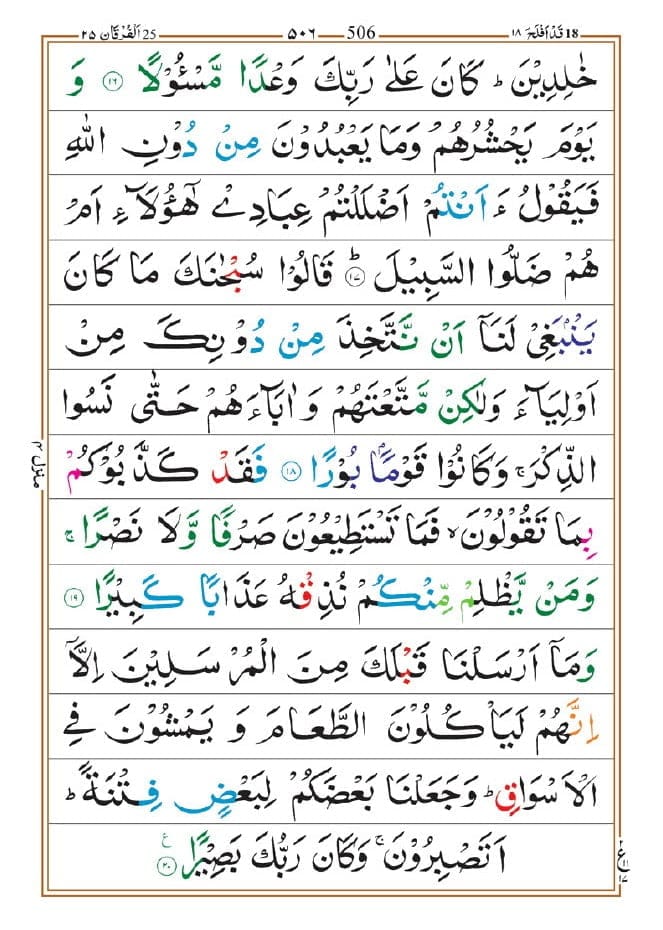 18 قَدْ اَفْلَحَ ١٨ 506 ٥٠٦ 25 اَلْفُرْقَان ٢٥
خٰلِدِيْنَ ؕ كَانَ عَلٰى رَبِّكَ وَعْدًا مَّسْـُٔوْلًا ۝١٦ وَ
يَوْمَ يَحْشُرُهُمْ وَمَا يَعْبُدُوْنَ مِنْ دُوْنِ اللّٰهِ
فَيَقُوْلُ ءَ اَنْتُمْ اَضْلَلْتُمْ عِبَادِىْ هٰٓؤُلَآءِ اَمْ
هُمْ ضَلُّوا السَّبِيْلَ ؕ۝١٧ قَالُوْا سُبْحٰنَكَ مَا كَانَ
يَنْۢبَغِىْ لَنَاۤ اَنْ نَّتَّخِذَ مِنْ دُوْنِكَ مِنْ
اَوْلِيَآءَ وَلٰكِنْ مَّتَّعْتَهُمْ وَ اٰبَآءَهُمْ حَتّٰى نَسُوا
الذِّكْرَ ۚ وَكَانُوْا قَوْمًۢا بُوْرًا ۝١٨ فَقَدْ كَذَّبُوْكُمْ
بِمَا تَقُوْلُوْنَ ۙ فَمَا تَسْتَطِيْعُوْنَ صَرْفًا وَّ لَا نَصْرًا ۚ
وَمَنْ يَّظْلِمْ مِّنْكُمْ نُذِقْهُ عَذَابًا كَبِيْرًا ۝١٩
وَمَاۤ اَرْسَلْنَا قَبْلَكَ مِنَ الْمُرْسَلِيْنَ اِلَّاۤ
اِنَّهُمْ لَيَاْكُلُوْنَ الطَّعَامَ وَ يَمْشُوْنَ فِى
الْاَسْوَاقِ ؕ وَجَعَلْنَا بَعْضَكُمْ لِبَعْضٍ فِتْنَةً ؕ
اَتَصْبِرُوْنَ ۚ وَكَانَ رَبُّكَ بَصِيْرًا ۝٢٠ ع
منزل ٤